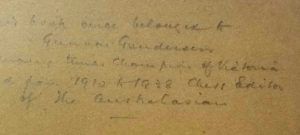 book once belonged to
Gunnar Gundersen
times Champion of Victoria
from 1910 to 1938 Chess Editor
of The Australasian